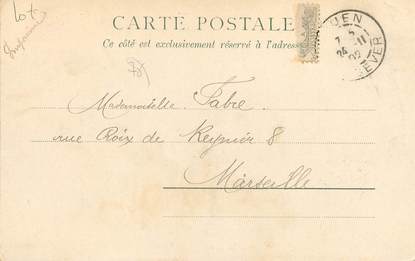 Lot
CARTE POSTALE
Ce côté est exclusivement réservé à l'adresse
Mademoiselle Fabre
rue Roix de Reynier 8
Marseille